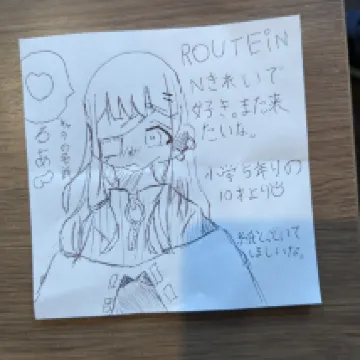 ROUTEiN
Nきれいで
好き。また来
たいな。
小学5年りの
10才より
るあ♡
とっといて
ほしいな。